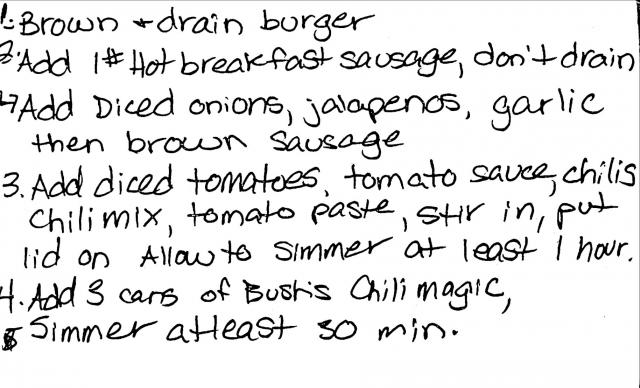 1. Brown + drain burger
2. Add 1# Hot breakfast sausage, don't drain
↳ Add Diced onions, jalapenos, garlic
then brown sausage
3. Add diced tomatoes, tomato sauce, chilis
Chili mix, tomato paste, stir in, put
lid on Allow to simmer at least 1 hour.
4. Add 3 cans of Bush's Chili magic,
Simmer at least 30 min.